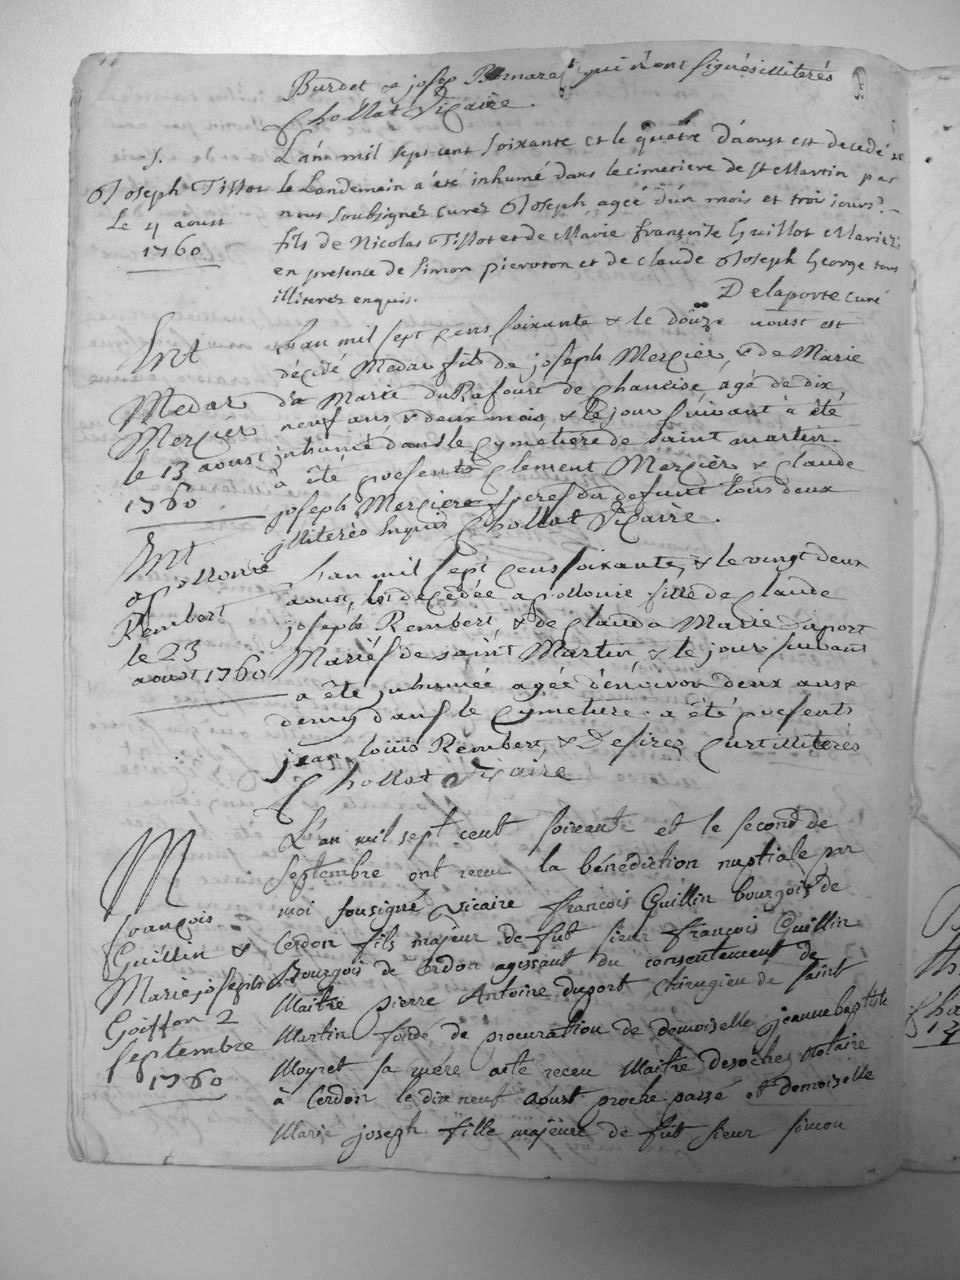 Burdet & josep qui n'ont signés illiterés
Chollat Vicaire.
L'an mil sept cent soixante et le quatre d'aoust est decedé et
S.
Joseph Tissot
Le 4 aoust
1760
le Landemain a été inhumé dans le cimetiere de st Martin par
nous soubsignez curez Joseph agée d'un mois et trois jours
fils de Nicolas Tissot et de Marie françoise Guillot Mariez
en presence de Simon pierroton et de claude Joseph George tous
illiterez enquis.
Delaporte curé
Ent
Medar
Mercier
le 13 aoust
1760
L'an mil sept cens soixante & le douze aoust est
décédé Medar fils de joseph Mercier & de Marie
Marie duRafour de Chancise, agé de dix
neuf ans & deux mois, & le jour suivant à été
inhumé dans le Cymetiere de saint martin.
à été presents Clement Mercier & Claude
joseph Mercier freres du defunt tous deux
illiterés Enquis Chollat Vicaire.
Ent
apollonie
Rembert
le 23
aoust 1760
L'an mil sept cens soixante, & le vingt deux
aoust, est decedée apollonie fille de Claude
joseph Rembert & de Clauda Marie duport
Mariés de saint Martin & le jour suivant
a été inhumée agée d'environ deux ans &
demy dans le Cymetiere. a été presents
jean louis Rembert & Desirez Curt illiterés
Chollat Vicaire
M
françois
Guillin &
Marie josephe
Goiffon 2
septembre
1760
L'an mil sept cent soixante et le second de
septembre ont receu la bénédiction nuptiale par
moi sousigné vicaire françois Guillin bourgois de
Cerdon fils majeur de fut sieur françois Guillin
Bourgois de Cerdon agissant du consentement de
Maitre pierre Antoine duport Chirugien de saint
Martin fondé de procuration de demoiselle jeanne baptiste
Moyret sa mére acte receu Maitre Desoches Notaire
à Cerdon le dix neuf Aoust proche passé et demoiselle
Marie joseph fille majeure de fut sieur simon